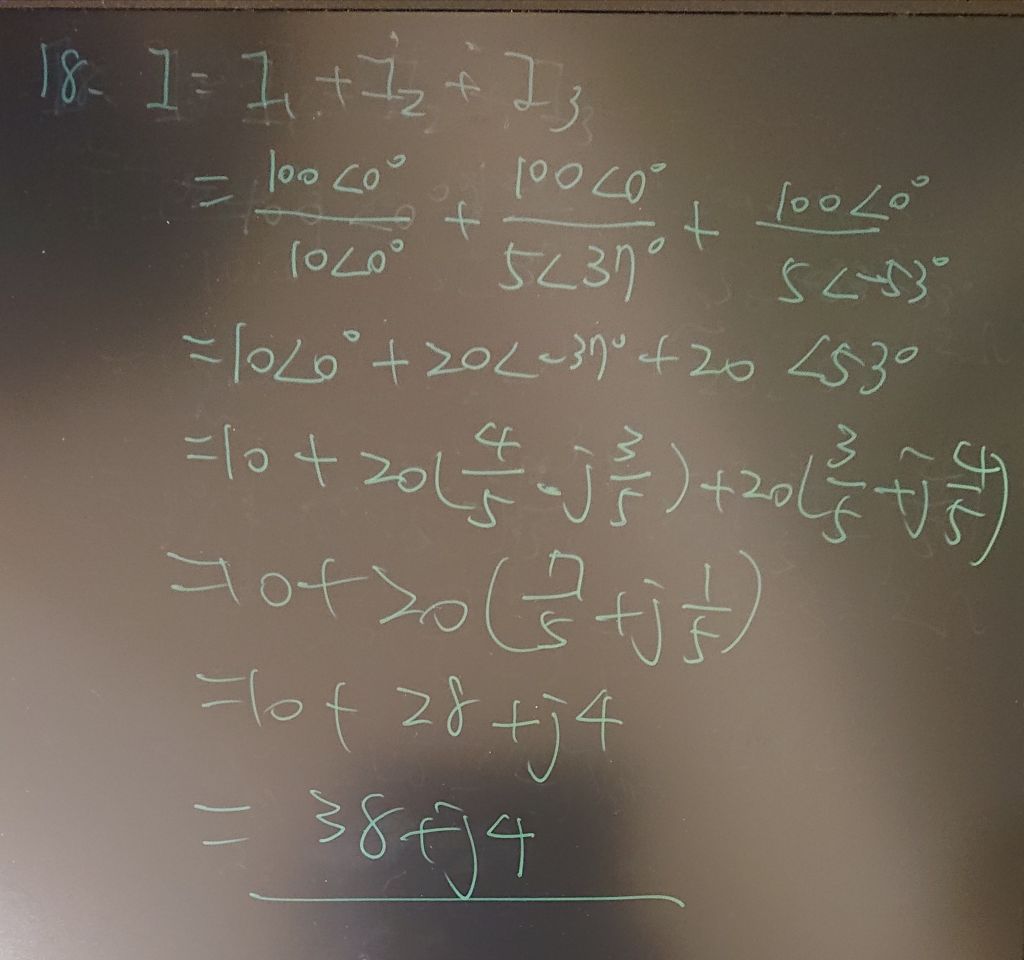 18. I = I₁ + İ₂ + İ₃
= 100∠0° / 10∠0° + 100∠0° / 5∠37° + 100∠0° / 5∠-53°
= 10∠0° + 20∠-37° + 20∠53°
= 10 + 20(4/5 - j 3/5) + 20(3/5 + j 4/5)
= 10 + 20(7/5 + j 1/5)
= 10 + 28 + j4
= 38 + j4